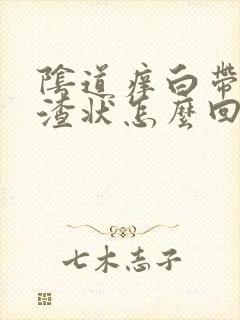 陰道痒白帶
渣状怎麼回
七木志子